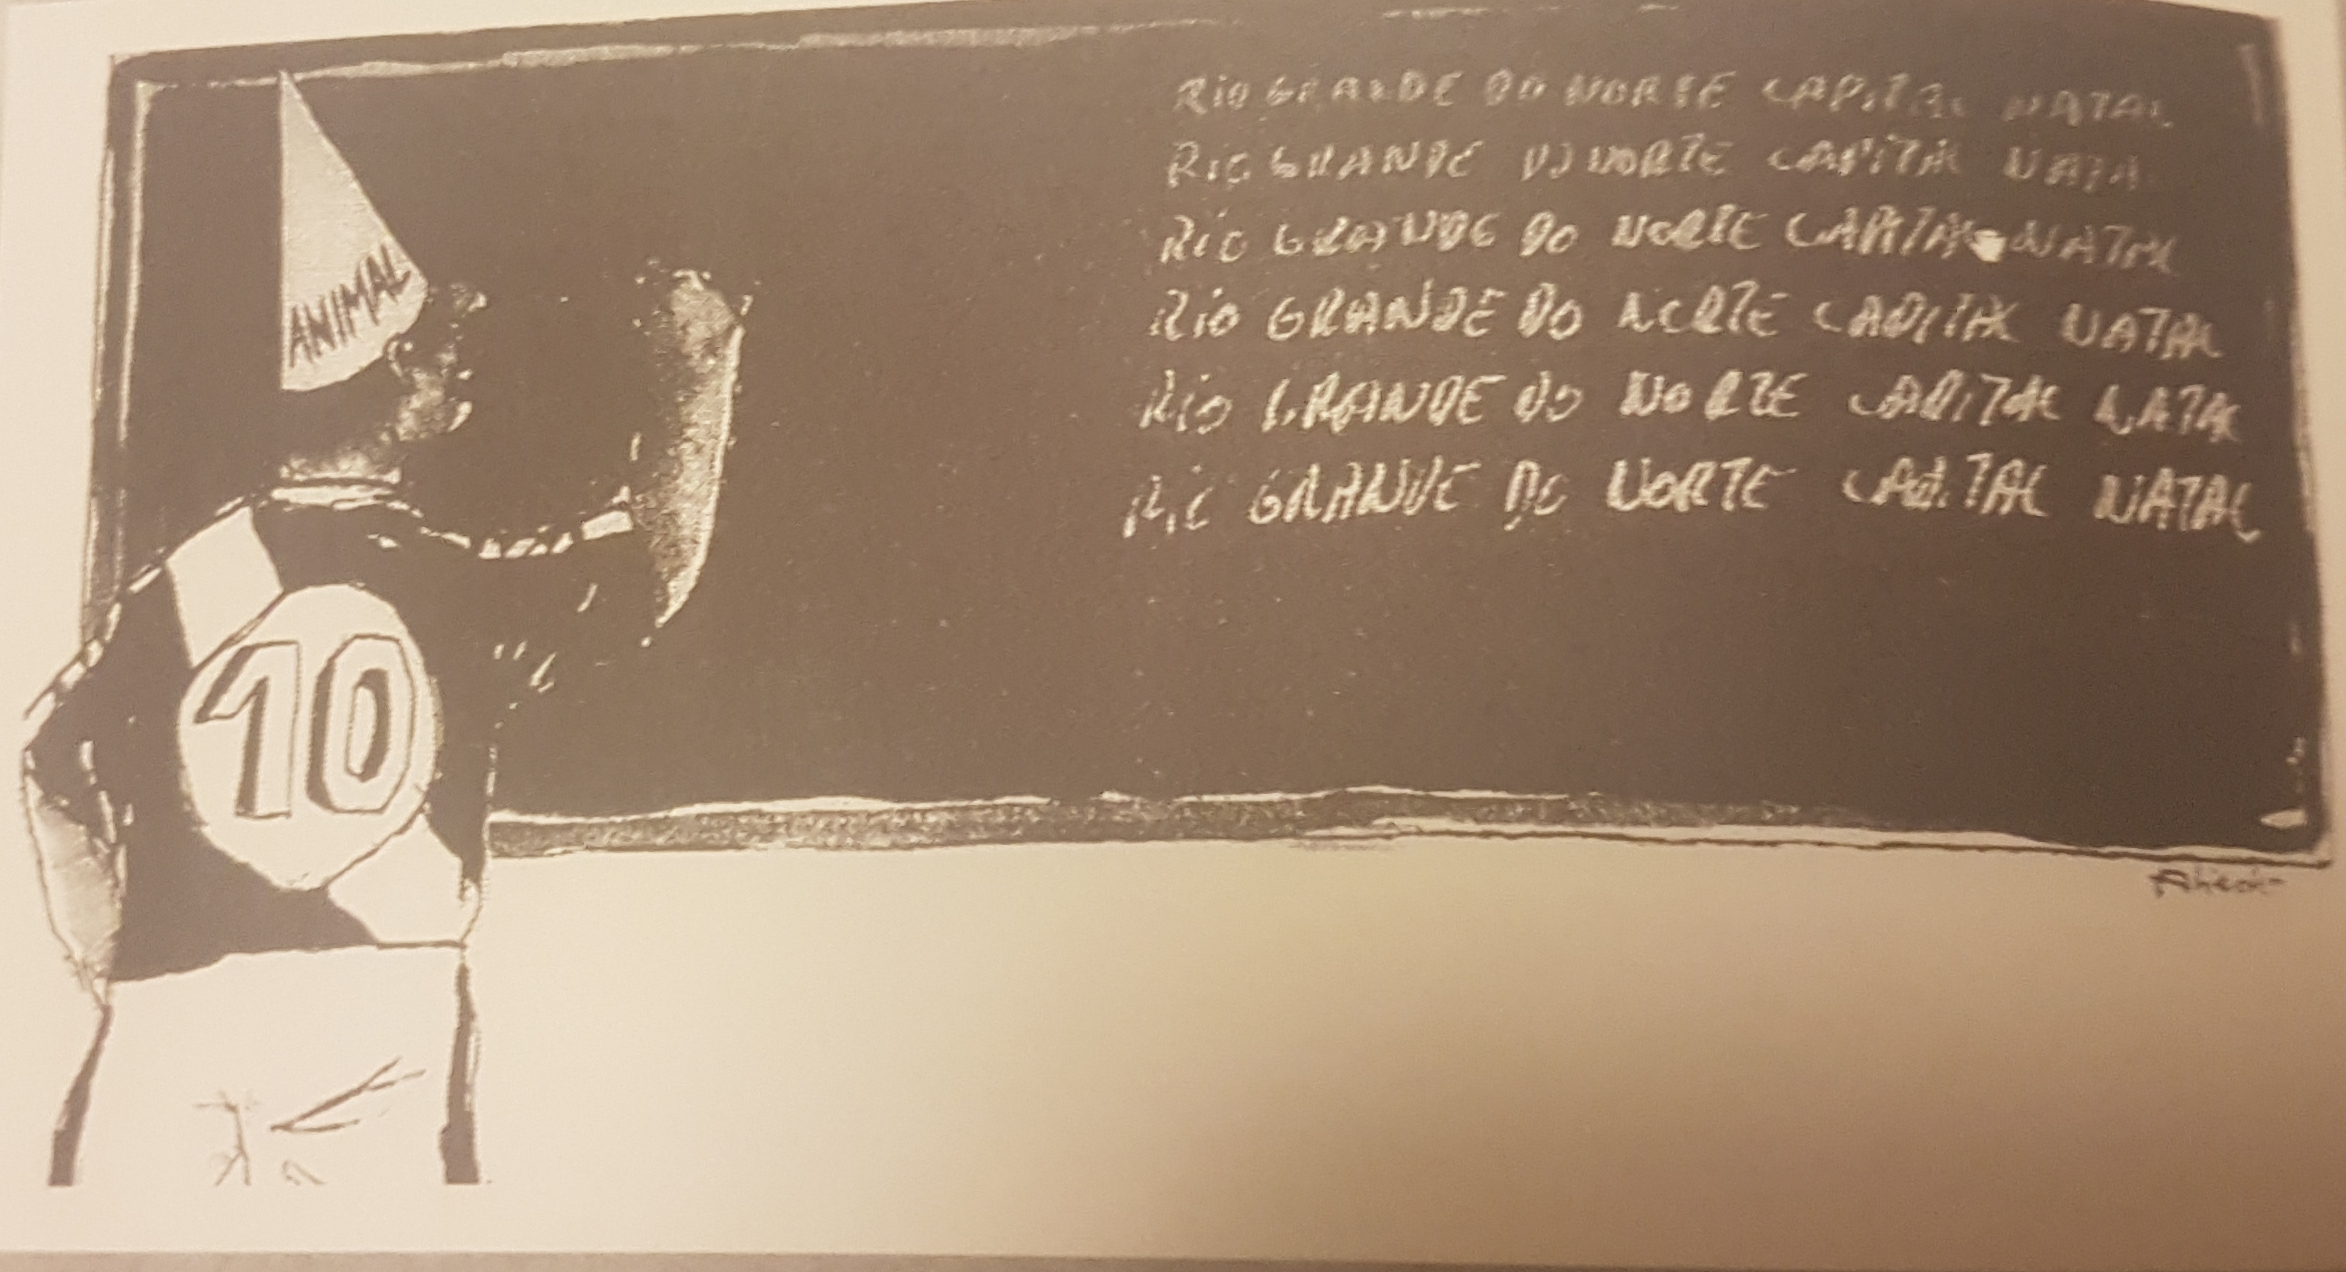 RIO GRANDE DO NORTE CAPITAL NATAL
RIO GRANDE DO NORTE CAPITAL NATAL
RIO GRANDE DO NORTE CAPITAL NATAL
RIO GRANDE DO NORTE CAPITAL NATAL
RIO GRANDE DO NORTE CAPITAL NATAL
RIO GRANDE DO NORTE CAPITAL NATAL
ANIMAL
10